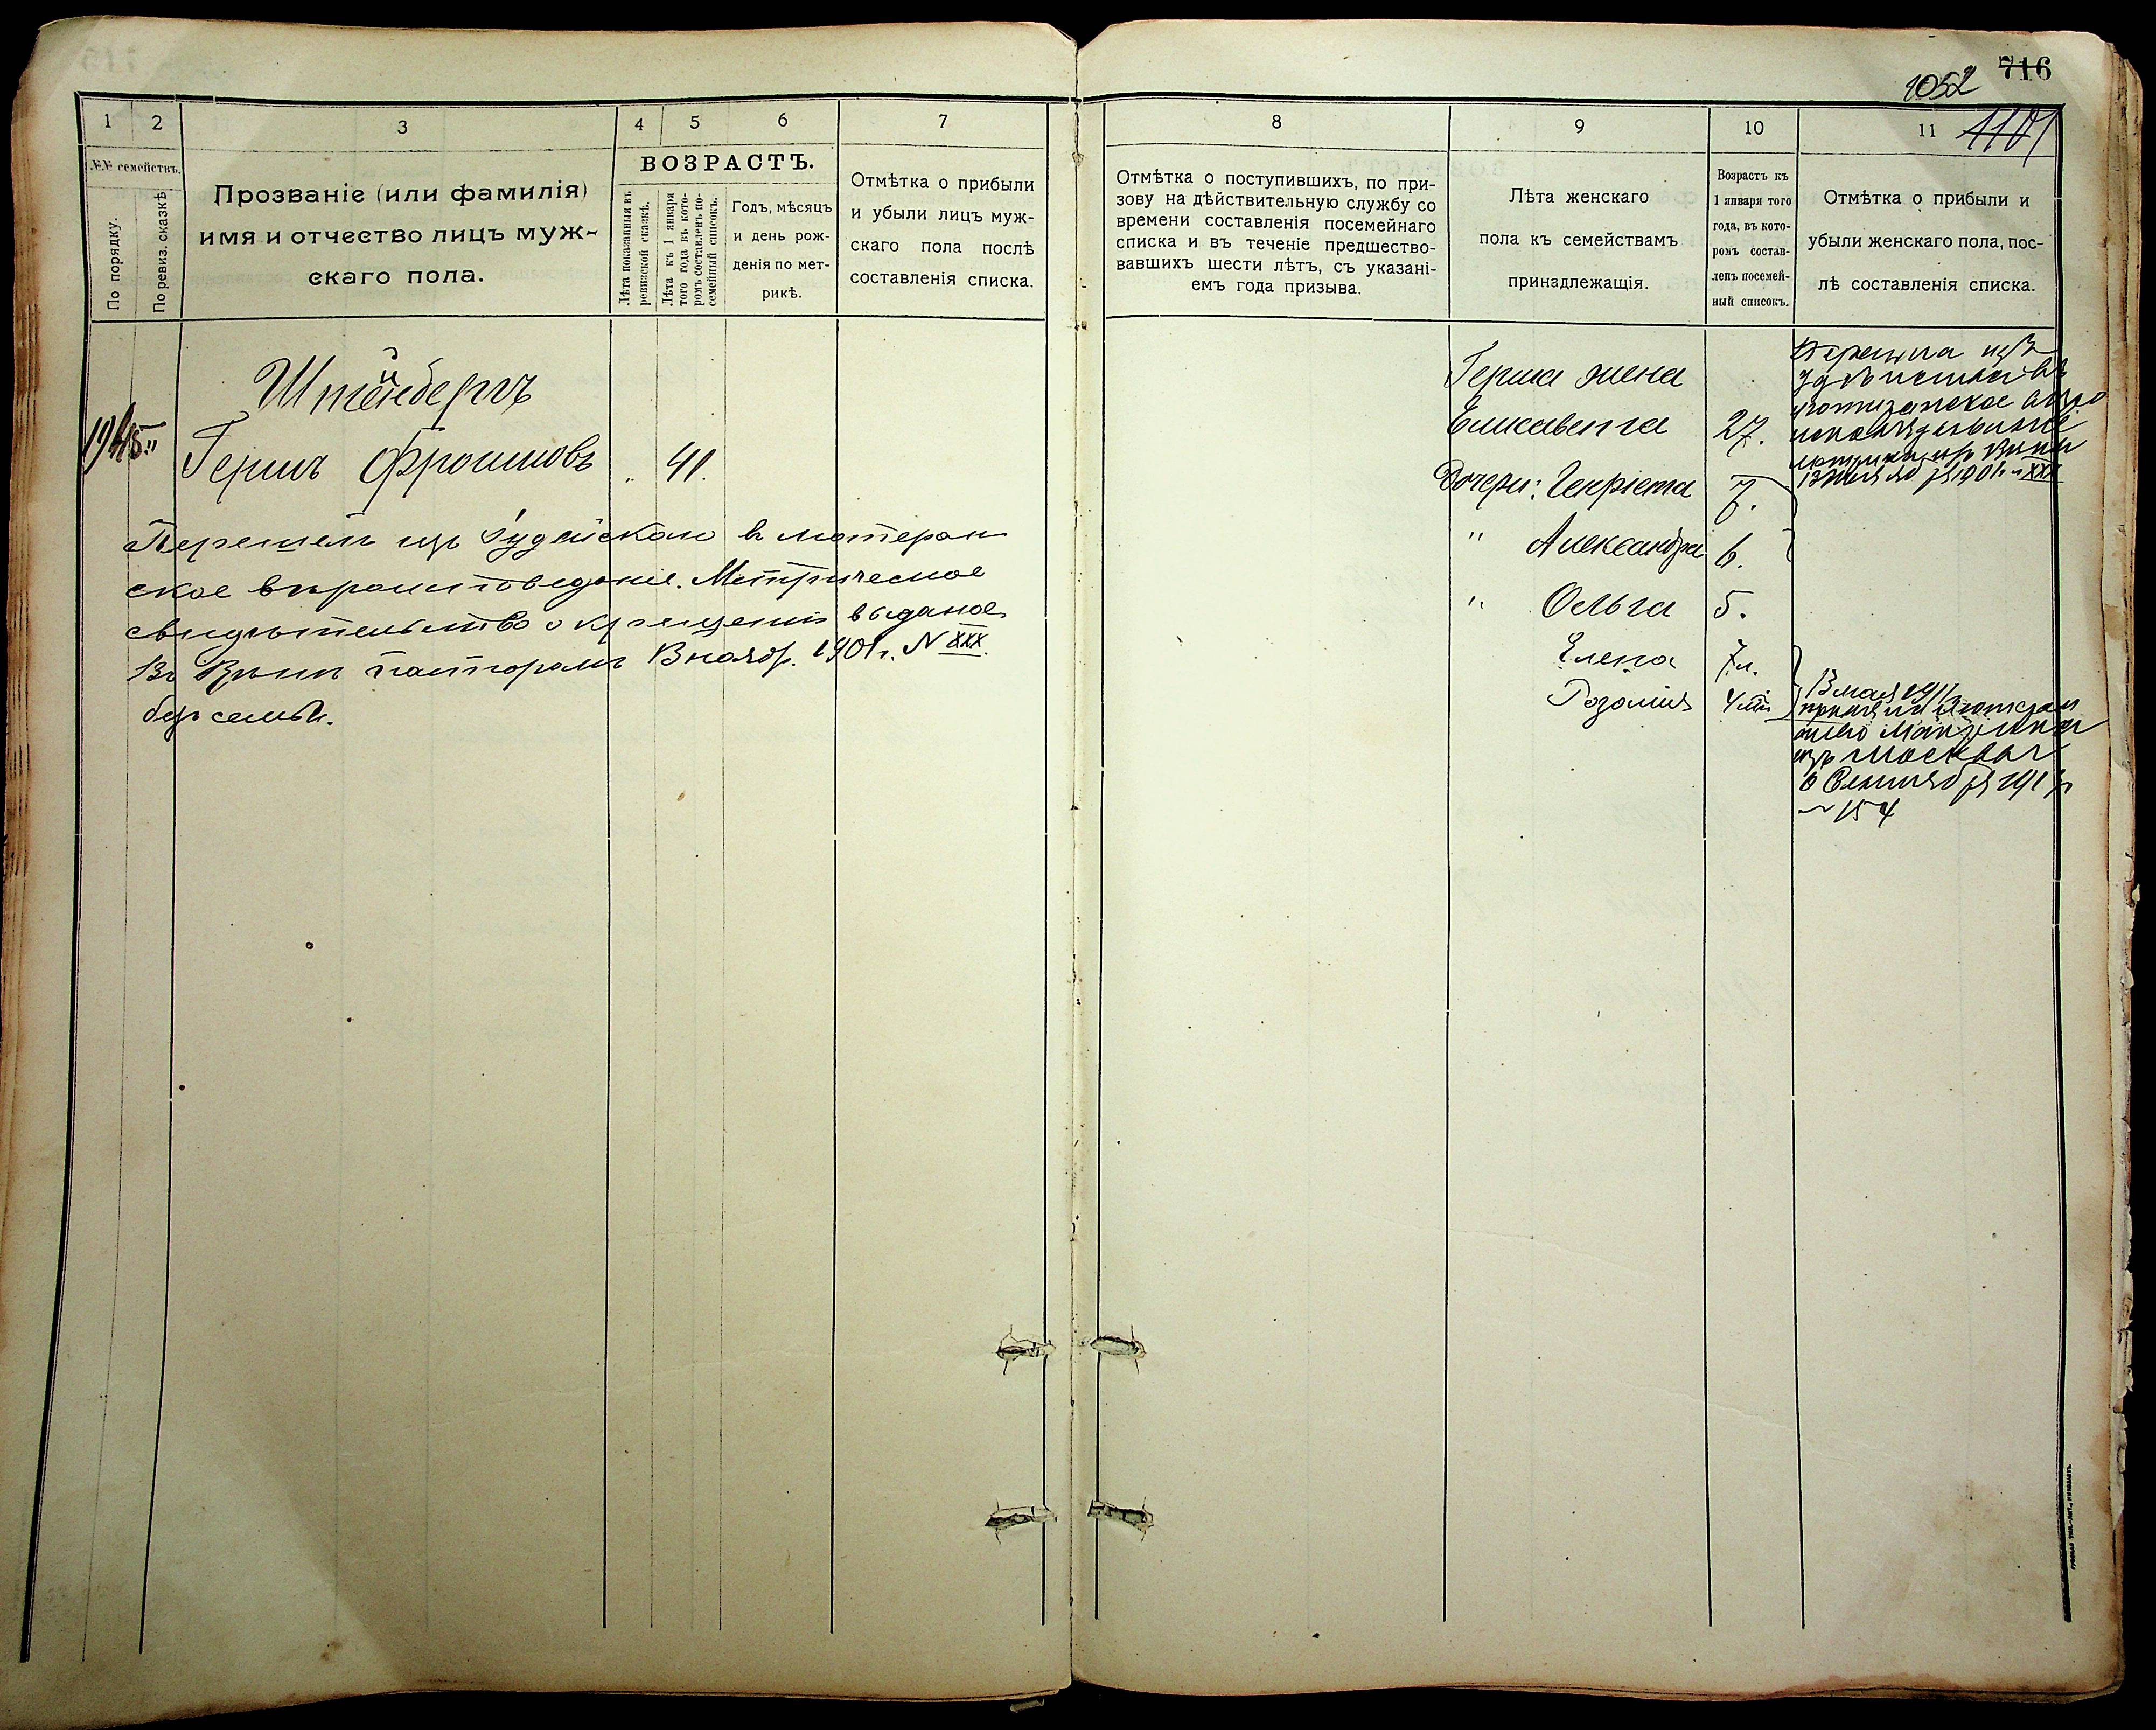 716
1052
1101
1
2
3
4
5
6
7
№№ семействъ.
По порядку.
По ревиз. сказкѣ
Прозваніе (или фамилія)
имя и отчество лицъ муж-
скаго пола.
ВОЗРАСТЪ.
Лѣта показанныя въ
ревизской сказкѣ.
Лѣта къ 1 января
того года въ кото-
ромъ составленъ по-
семейный списокъ.
Годъ, мѣсяцъ
и день рож-
денія по мет-
рикѣ.
Отмѣтка о прибыли
и убыли лицъ муж-
скаго пола послѣ
составленія списка.
Штейнбергъ
Гершъ Фроимовъ " 41.
Перешелъ изъ Іудейскаго въ лютеран
ское вѣроисповеданіе. Метрическое
свидѣтельство о крещеніи выданое
въ Вѣнѣ пасторомъ 13 ноябр. 1901 г. N XXX.
безъ семьи.
8
9
10
11
Отмѣтка о поступившихъ, по при-
зову на дѣйствительную службу со
времени составленія посемейнаго
списка и въ теченіе предшество-
вавшихъ шести лѣтъ, съ указані-
емъ года призыва.
Лѣта женскаго
пола къ семействамъ
принадлежащія.
Возрастъ къ
1 января того
года, въ кото-
ромъ состав-
ленъ посемей-
ный списокъ.
Отмѣтка о прибыли и
убыли женскаго пола, пос-
лѣ составленія списка.
Герша жена
Елисавета 27.
Дочери: Генріета 7.
" Александра 6.
" Ольга 5.
Елена 7 л.
Розалія 4
Перешла изъ
13 ноября 1901 г. XXX
13 мая 1911
изъ Москвы
6 Сентября 191
№ 154